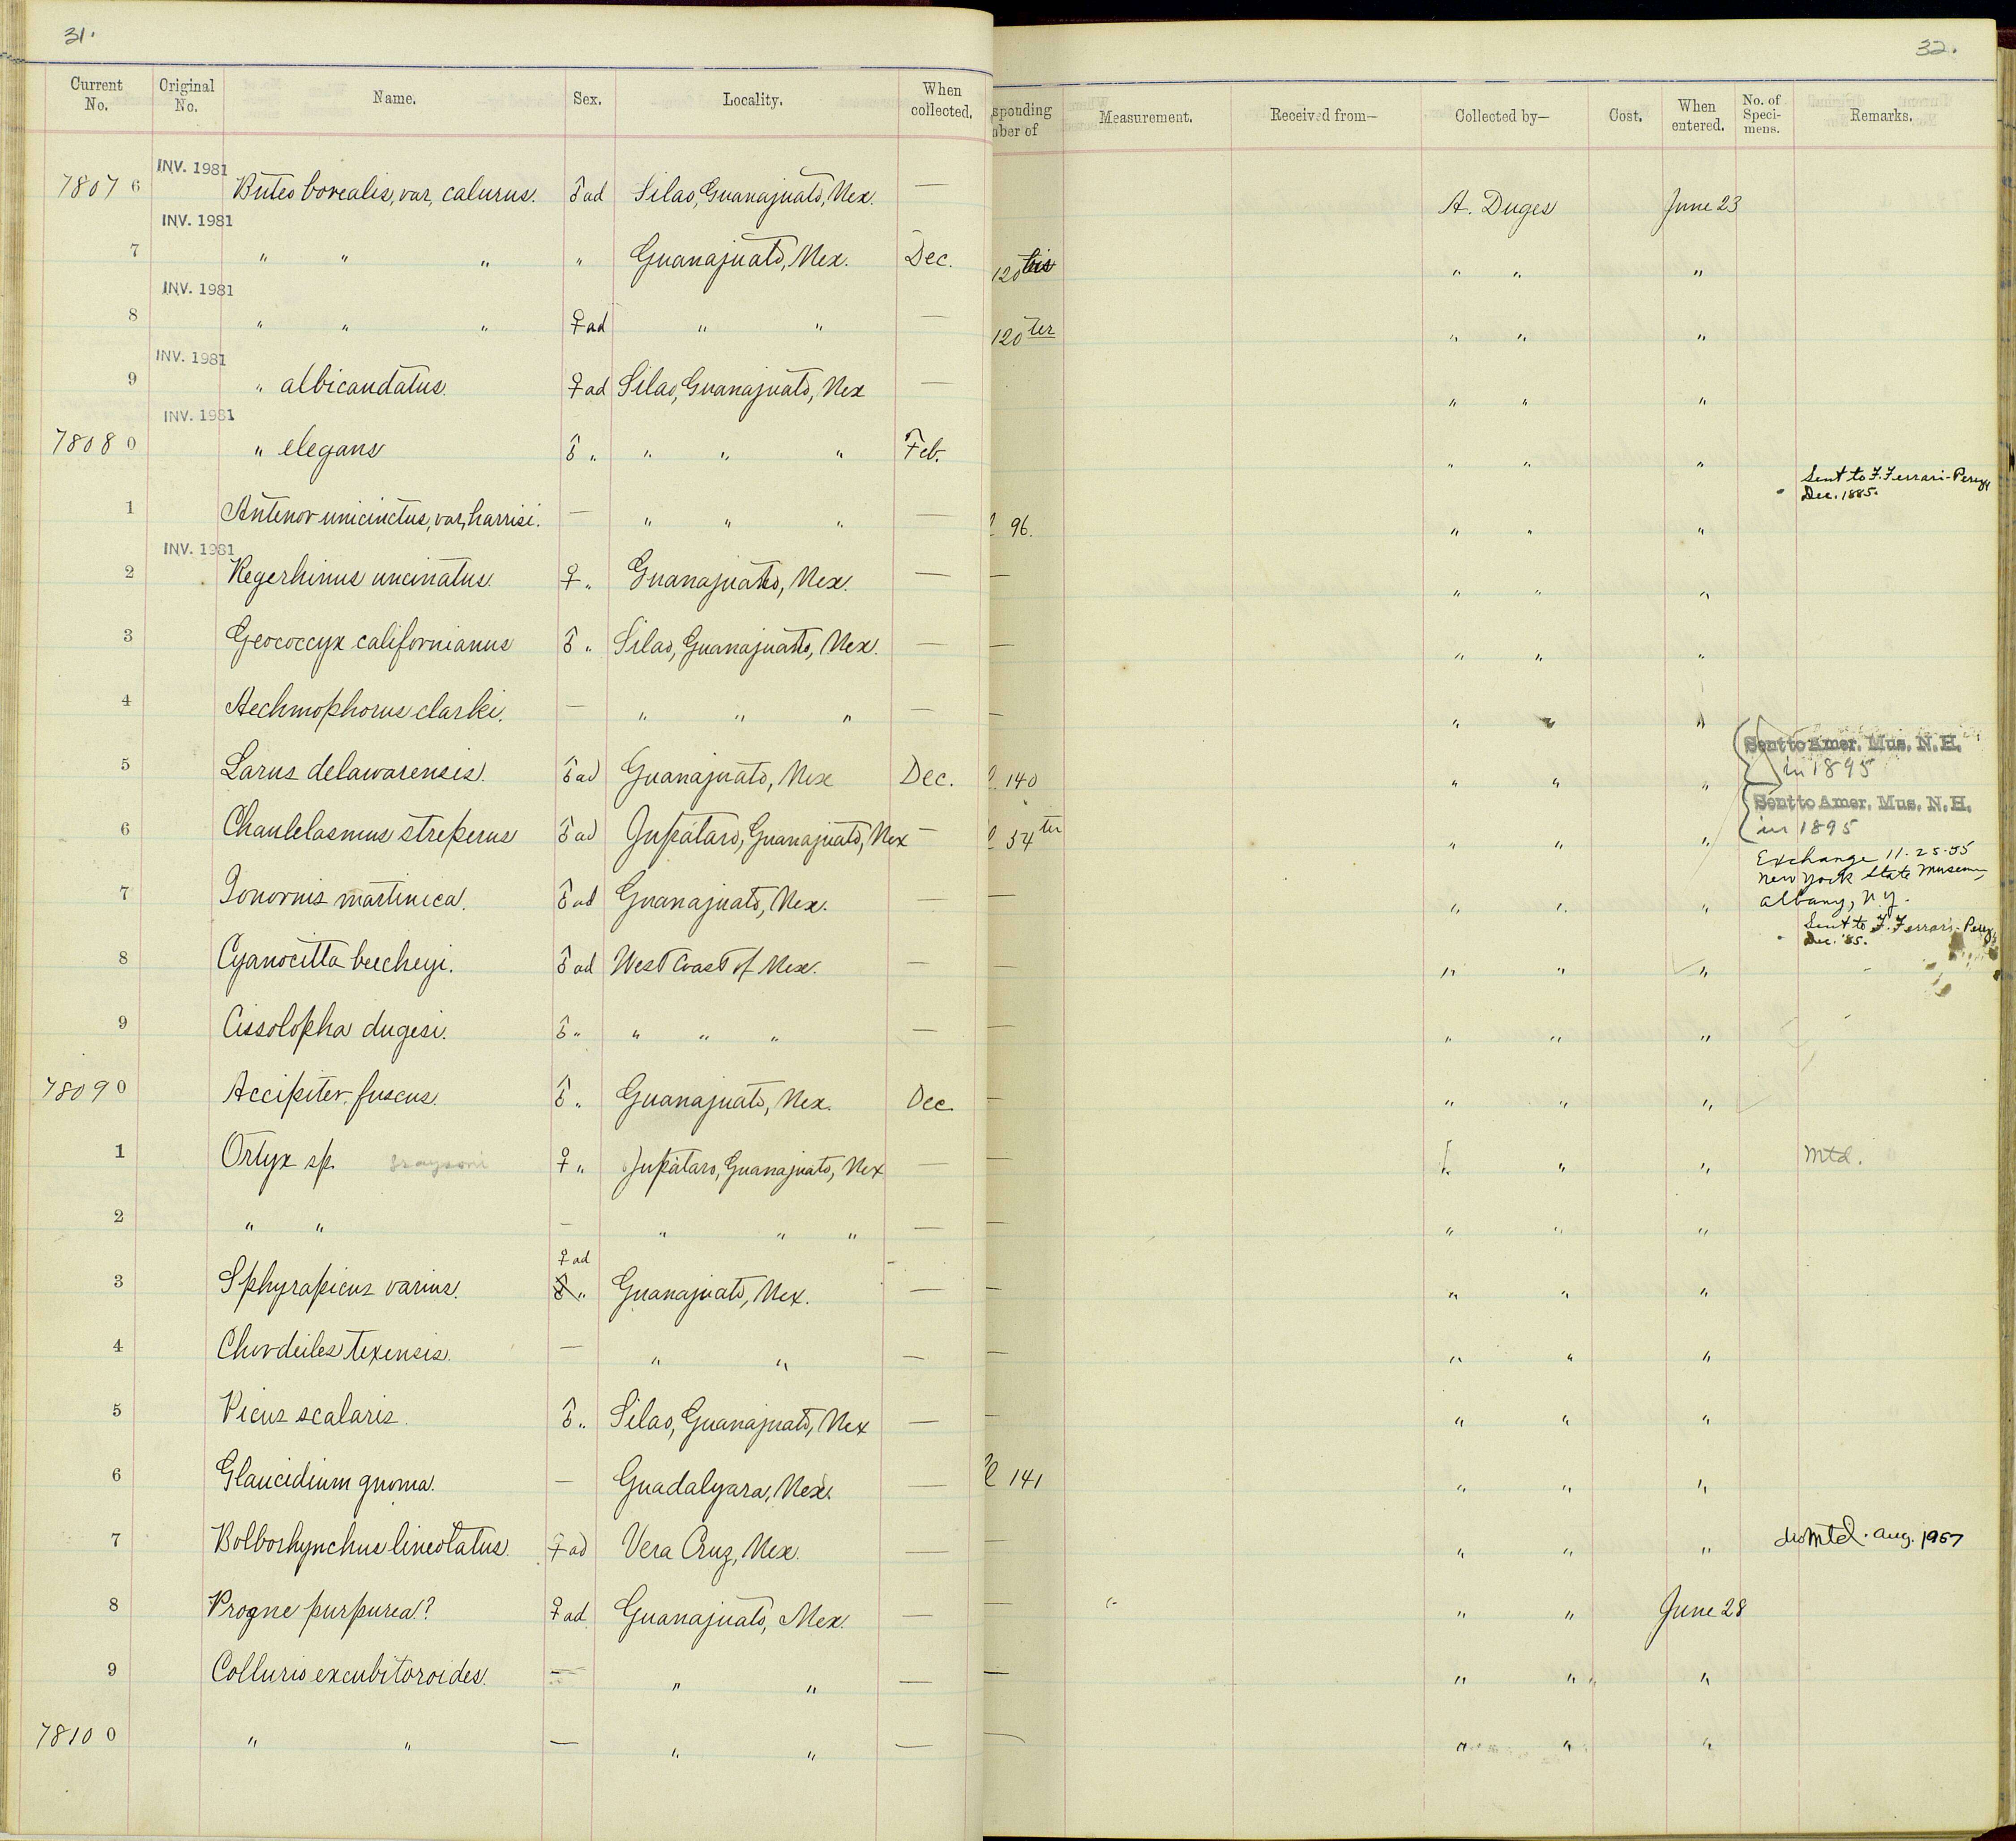 31.
32.
Current No. Original No. Name. Sex. Locality. When collected.
sponding
ber of Measurement. Received from— Collected by— Cost. When entered. No. of Speci-mens. Remarks.
INV. 1981
78076 Buteo borealis, var, calurus. ♂ ad Silao, Guanajuato, Mex. — A. Duges June 23
INV. 1981
7 " " " " Guanajuato, Mex. Dec. 120 bis " " "
INV. 1981
8 " " " ♀ ad " " — 120 ter " " "
INV. 1981
9 " albicaudatus. ♀ ad Silao, Guanajuato, Mex — " " "
INV. 1981
78080 " elegans ♂ " " " " Feb. " " "
Sent to F. Ferrari-Perez,
Dec. 1885.
1 Antenor unicinctus, var, harrisi. — " " " — 96. " " "
INV. 1981
2 Regerhinus uncinatus. ♀ " Guanajuato, Mex. — — " " "
3 Geococcyx californianus ♂ " Silao, Guanajuato, Mex. — — " " "
4 Aechmophorus clarki. — " " " — — " " "
Sent to Amer. Mus. N. H.
in 1895
5 Larus delawarensis. ♂ ad Guanajuato, Mex Dec. 140 " " "
Sent to Amer. Mus. N. H.
in 1895
6 Chaulelasmus streperus ♂ ad Jupátaro, Guanajuato, Mex — 54 ter " " "
Exchange 11-25-55
New York State Museum,
Albany, N.Y.
7 Ionornis martinica. ♂ ad Guanajuato, Mex. — — " " "
Sent to F. Ferrari-Perez,
Dec. '85.
8 Cyanocitta beecheyi. ♂ ad West Coast of Mex. — — " " "
9 Cissolopha dugesi. ♂ " " " " — — " " "
78090 Accipiter fuscus. ♂ " Guanajuato, Mex. Dec — " " "
1 Ortyx sp. graysoni ♀ " Jupátaro, Guanajuato, Mex — — " " " Mtd.
2 " " — " " " — — " " "
♀ ad
3 Sphyrapicus varius. ♂ " Guanajuato, Mex. — — " " "
4 Chordeiles texensis. — " " — — " " "
5 Picus scalaris. ♂ " Silao, Guanajuato, Mex — — " " "
6 Glaucidium gnoma. — Guadalyara, Mex. — 141 " " "
7 Bolborhynchus lineolatus. ♀ ad Vera Cruz, Mex. — — " " " dismtd. Aug. 1957
8 Progne purpurea? ♀ ad Guanajuato, Mex. — — " " June 28
9 Collurio excubitoroides. — " " — — " " "
78100 " " — " " — — " " "